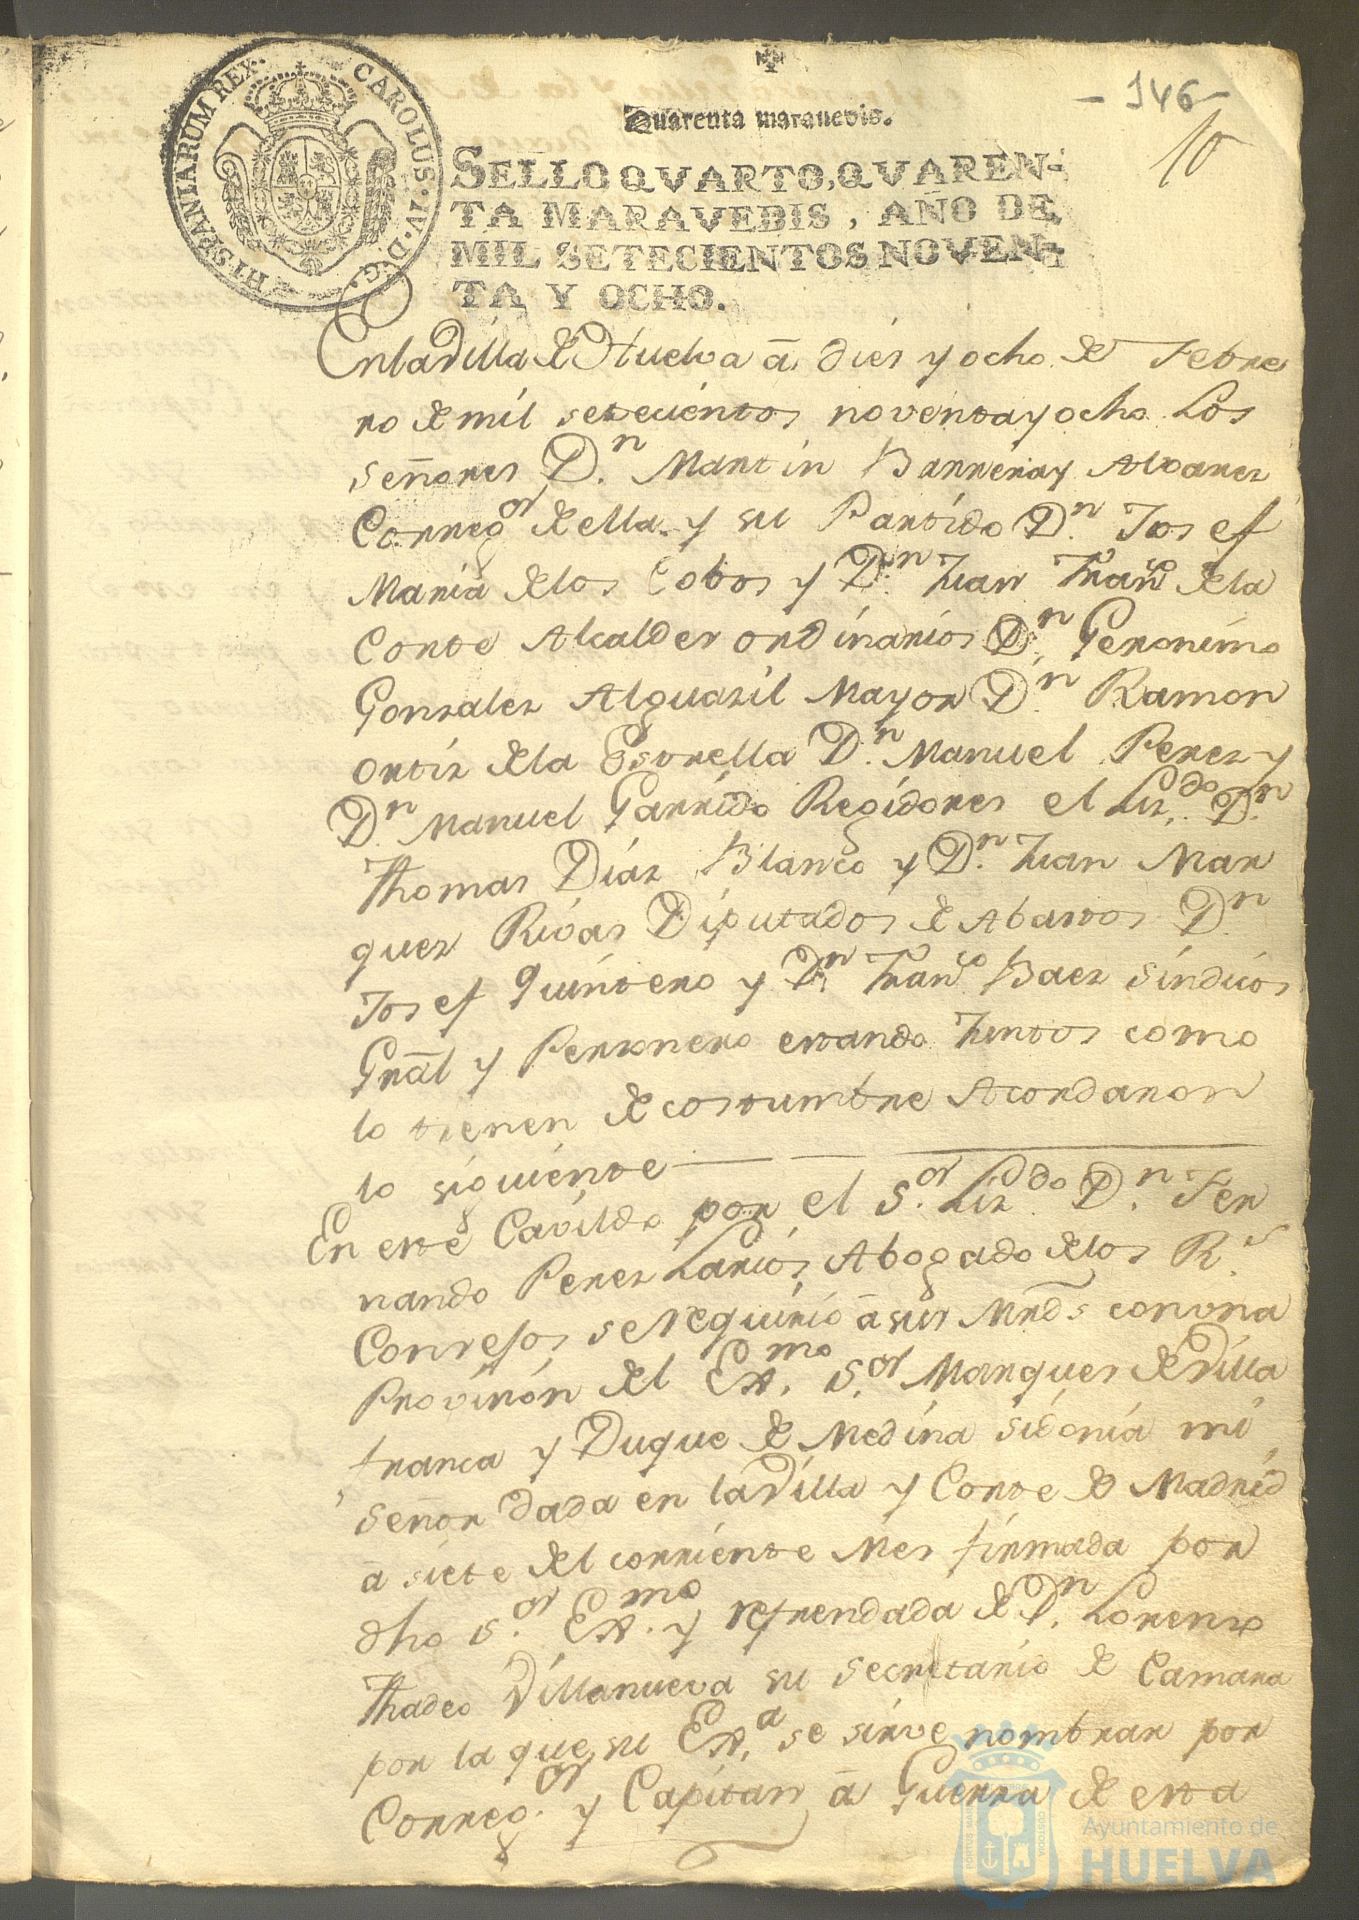 HISPANIARUM REX. CAROLUS·IV·D·G·
- 146 -
10
Quarenta maravedis.
SELLO QVARTO, QVAREN-
TA MARAVEDIS, AÑO DE
MIL SETECIENTOS NOVEN-
TA Y OCHO.
En la Villa de Huelva â dies y ocho de Febre
ro de mil setecientos noventa y ocho Los
señores D.n Martin Barrera y Alvarez
Correg.or de ella y su Partido D.n Josef
Maria de los Cobos y D.n Juan Fran.co de la
Corte Alcaldes ordinarios D.n Geronimo
Gonzalez Alguasil Mayor D.n Ramon
ortiz de la Estrella D.n Manuel Perez y
D.n Manuel Garrido Regidores el Liz.do D.n
Thomas Diaz Blanco y D.n Juan Mar
quez Rivas Diputados de Abastos D.n
Josef Quintero y D.n Fran.co Baez sindicos
Grâl y Personero estando Juntos como
lo tienen de costumbre Acordaron
lo siguiente
En este Cavildo por el S.or Liz.do D.n Fer
nando Perez Larios Abogado de los R.s
Consejos se requirio â sus Mrds con una
Provision del Ex.mo S.or Marques de Villa
franca y Duque de Medina sidonia mi
señor dada en la Villa y Corte de Madrid
â siete del corriente Mes firmada por
dho S.or Ex.mo y refrendada de D.n Lorenzo
Thadeo Villanueva su secretario de Camara
por la que su Ex.a se sirve nombrar por
Correg.or y Capitan â Guerra de esta
Ayuntamiento de
HUELVA